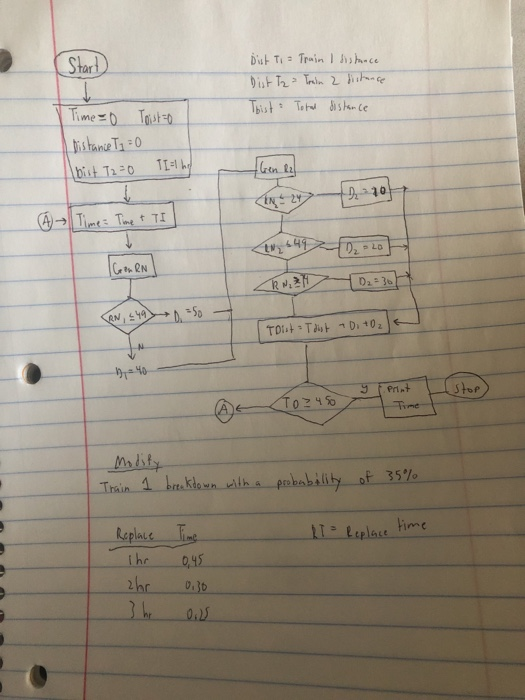 Start
Dist T1 = Train 1 distance
Dist T2 = Train 2 distance
TDist = Total distance
Time = 0 TDist=0
Distance T1 = 0
Dist T2 = 0 TI=1 hr
A
Time = Time + TI
Gen RN
RN1 ≤ 49
D1 = 50
N
D1 = 40
Gen R2
RN2 ≤ 24
D2 = 10
RN2 ≤ 49
D2 = 20
RN2
D2 = 30
TDist = TDist + D1 + D2
A
TD ≥ 450
y
Print
Time
Stop
Modify
Train 1 breakdown with a probability of 35%
Replace Time
RT = Replace time
1 hr 0.45
2 hr 0.30
3 hr 0.25